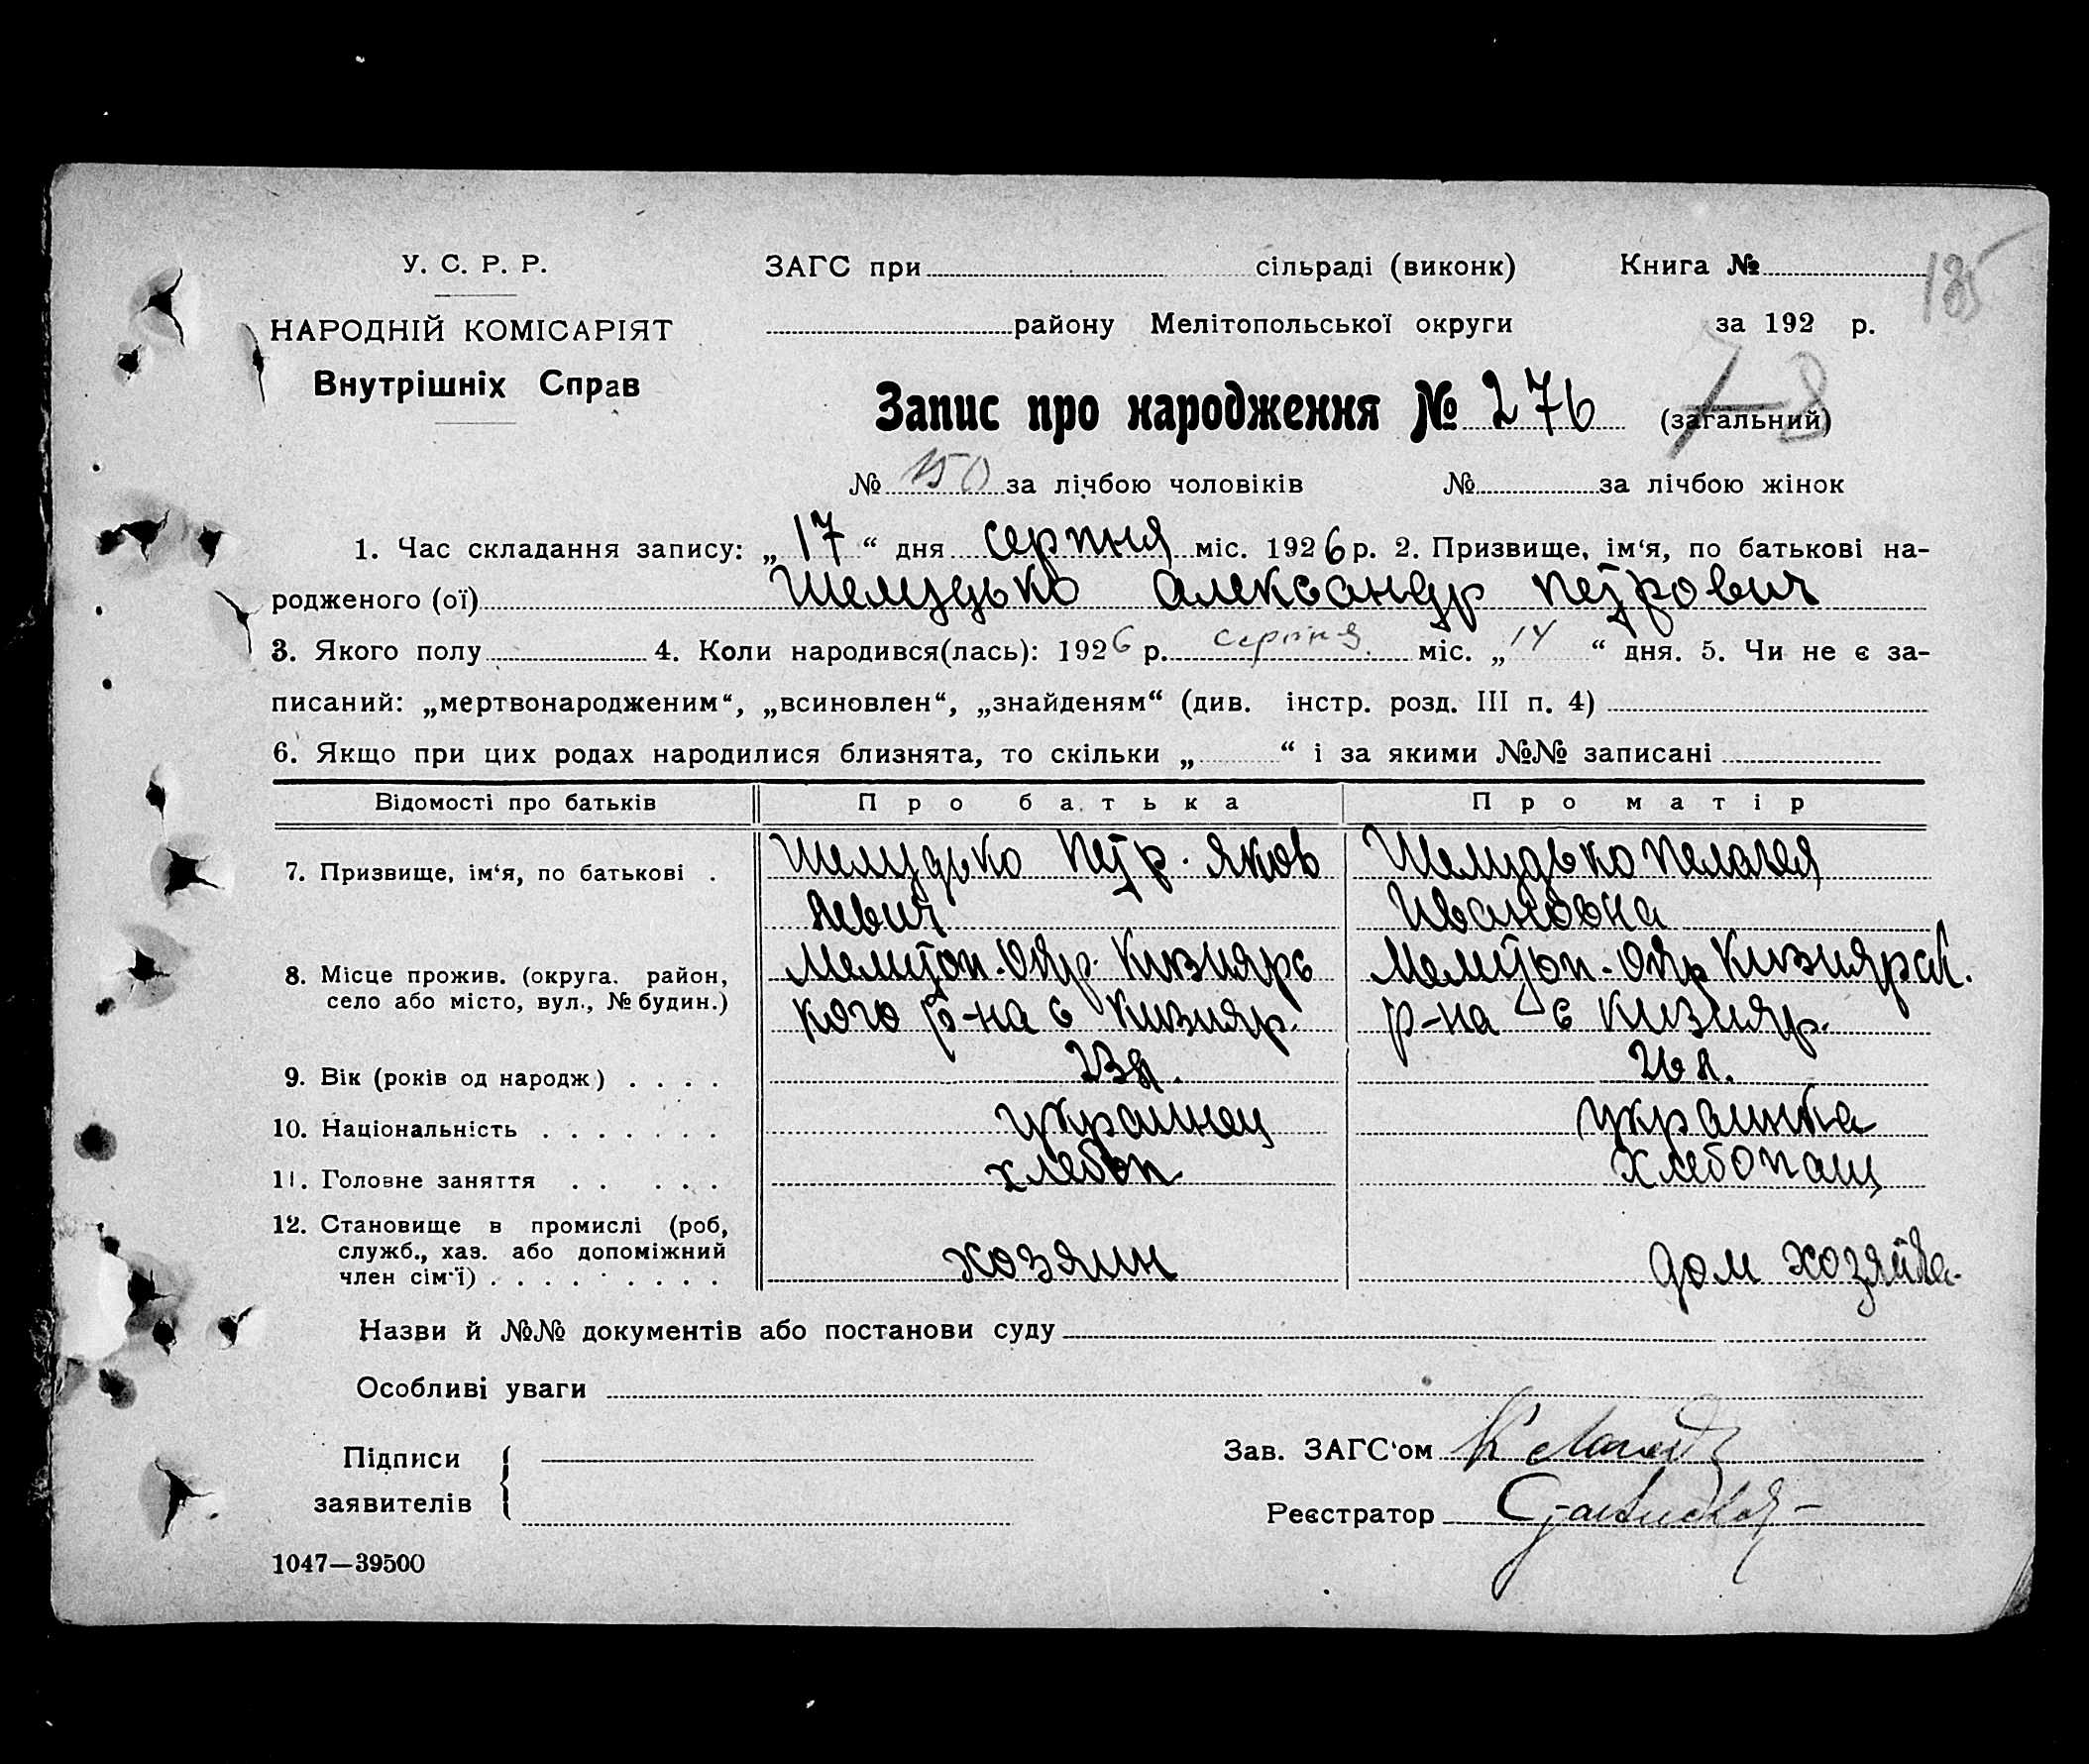 У. С. Р. Р.
ЗАГС при сільраді (виконк) Книга № 185
НАРОДНІЙ КОМІСАРІЯТ
району Мелітопольської округи за 192 р.
Внутрішніх Справ
Запис про народження № 276 (загальний) 78
№ 150 за лічбою чоловіків № за лічбою жінок
1. Час складання запису: „ 17 “ дня серпня міс. 1926 р. 2. Призвище, ім‘я, по батькові на-
родженого (ої) Шелудько Александр Петрович
3. Якого полу 4. Коли народився(лась): 1926 р. серпня міс. „ 14 “ дня. 5. Чи не є за-
писаний: „мертвонародженим“, „всиновлен“, „знайденям“ (див. інстр. розд. III п. 4)
6. Якщо при цих родах народилися близнята, то скільки „ “ і за якими №№ записані
Відомості про батьків Про батька Про матір
7. Призвище, ім‘я, по батькові . Шелудько Петр. Яков Шелудько Пелагея
левич Ивановна
8. Місце прожив. (округа. район, Мелитоп. Окр. Кизиярс Мелитоп. Окр Кизиярск.
село або місто, вул., № будин.) кого р-на с Кизияр. р-на с Кизияр.
9. Вік (років од народж) . . . . 23 л. 26 л.
10. Національність . . . . . . . украинец украинка
11. Головне заняття . . . . . хлебоп хлебопащ
12. Становище в промислі (роб,
служб., хаз. або допоміжний
член сім‘ї) . . . . . . . . . хозяин дом хозяйка.
Назви й №№ документів або постанови суду
Особливі уваги
Підписи
заявителів
Зав. ЗАГС‘ом
Реєстратор
1047—39500